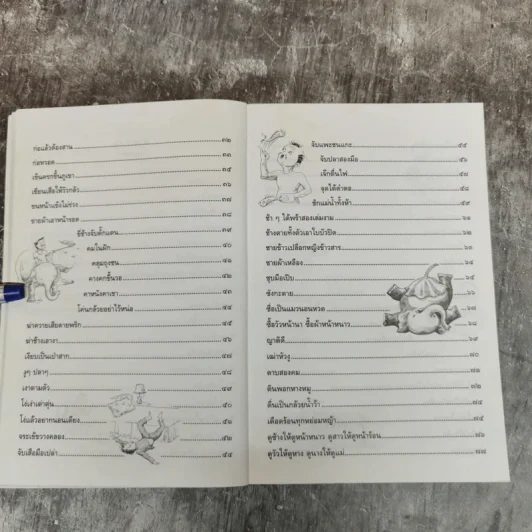 ก่อแล้วต้องสาน ๓๒
ก่อหวอด ๓๓
เข็นครกขึ้นภูเขา ๓๕
เขียนเสือให้วัวกลัว ๓๖
ขนหน้าแข้งไม่ร่วง ๓๗
ขายผ้าเอาหน้ารอด ๓๘
ขี่ช้างจับตั๊กแตน ๓๙
คมในฝัก ๔๐
คลุมถุงชน ๔๑
คางคกขึ้นวอ ๔๒
คาหนังคาเขา ๔๓
โค่นกล้วยอย่าไว้หน่อ ๔๔
ฆ่าควายเสียดายพริก ๔๕
ฆ่าช้างเอางา ๔๖
เงียบเป็นเป่าสาก ๔๗
งูๆ ปลาๆ ๔๘
เงาตามตัว ๔๙
โง่เง่าเต่าตุ่น ๕๐
โง่แล้วอยากนอนเตียง ๕๑
จระเข้ขวางคลอง ๕๒
จับเสือมือเปล่า ๕๔
จับแพะชนแกะ ๕๕
จับปลาสองมือ ๕๖
เจ๊กตื่นไฟ ๕๗
จุดใต้ตำตอ ๕๘
ชักแม่น้ำทั้งห้า ๕๙
ช้า ๆ ได้พร้าสองเล่มงาม ๖๑
ช้างตายทั้งตัวเอาใบบัวปิด ๖๒
ชายข้าวเปลือกหญิงข้าวสาร ๖๓
ชายผ้าเหลือง ๖๔
ชุบมือเปิบ ๖๕
ซังกะตาย
ซื่อเป็นแมวนอนหวด
ซื้อวัวหน้านา ซื้อผ้าหน้าหนาว ๖๘
ญาติดี ๖๙
เฒ่าหัวงู ๗๐
ดาบสองคม
ดินพอกหางหมู ๗๒
ตื่นเป็นกล้วยน้ำว้า
เดือดร้อนทุกหย่อมหญ้า ๗๕
ดูช้างให้ดูหน้าหนาว ดูสาวให้ดูหน้าร้อน ๗๖
ดูวัวให้ดูหาง ดูนางให้ดูแม่ ๗๗